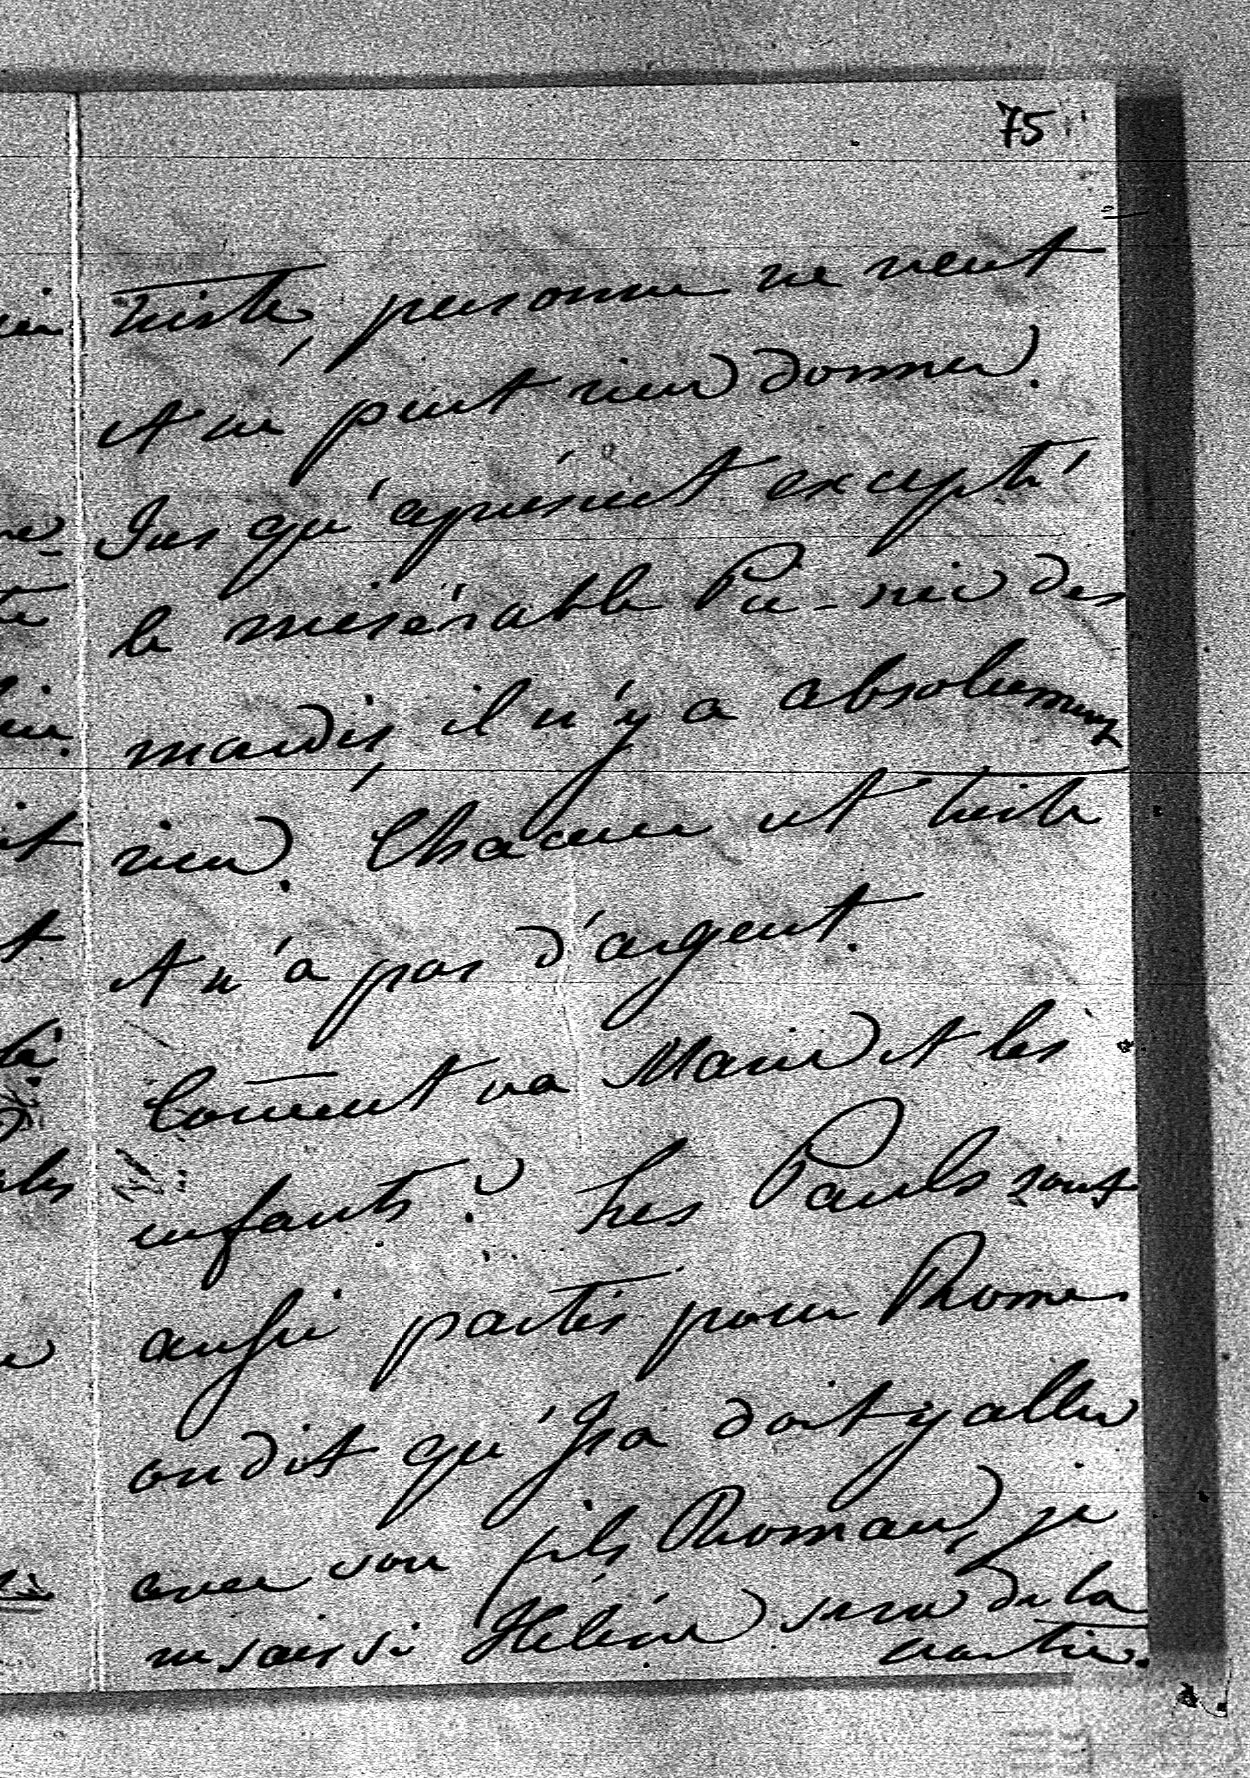 75
triste, personne ne veut
et ne peut rien donner.
Jusqu'àprésent excepté
le misérable Pic-nic des
mardis, il n'y a absolument
rien. Chacun est triste
et n'a pas d'argent.
Coment va Marie et les
enfants? Les Pauls sont
aussi partis pour Rome
on dit qu'Isa doit y aller
avec son fils Roman, je
ne sais si Hélène sera de la
partie.